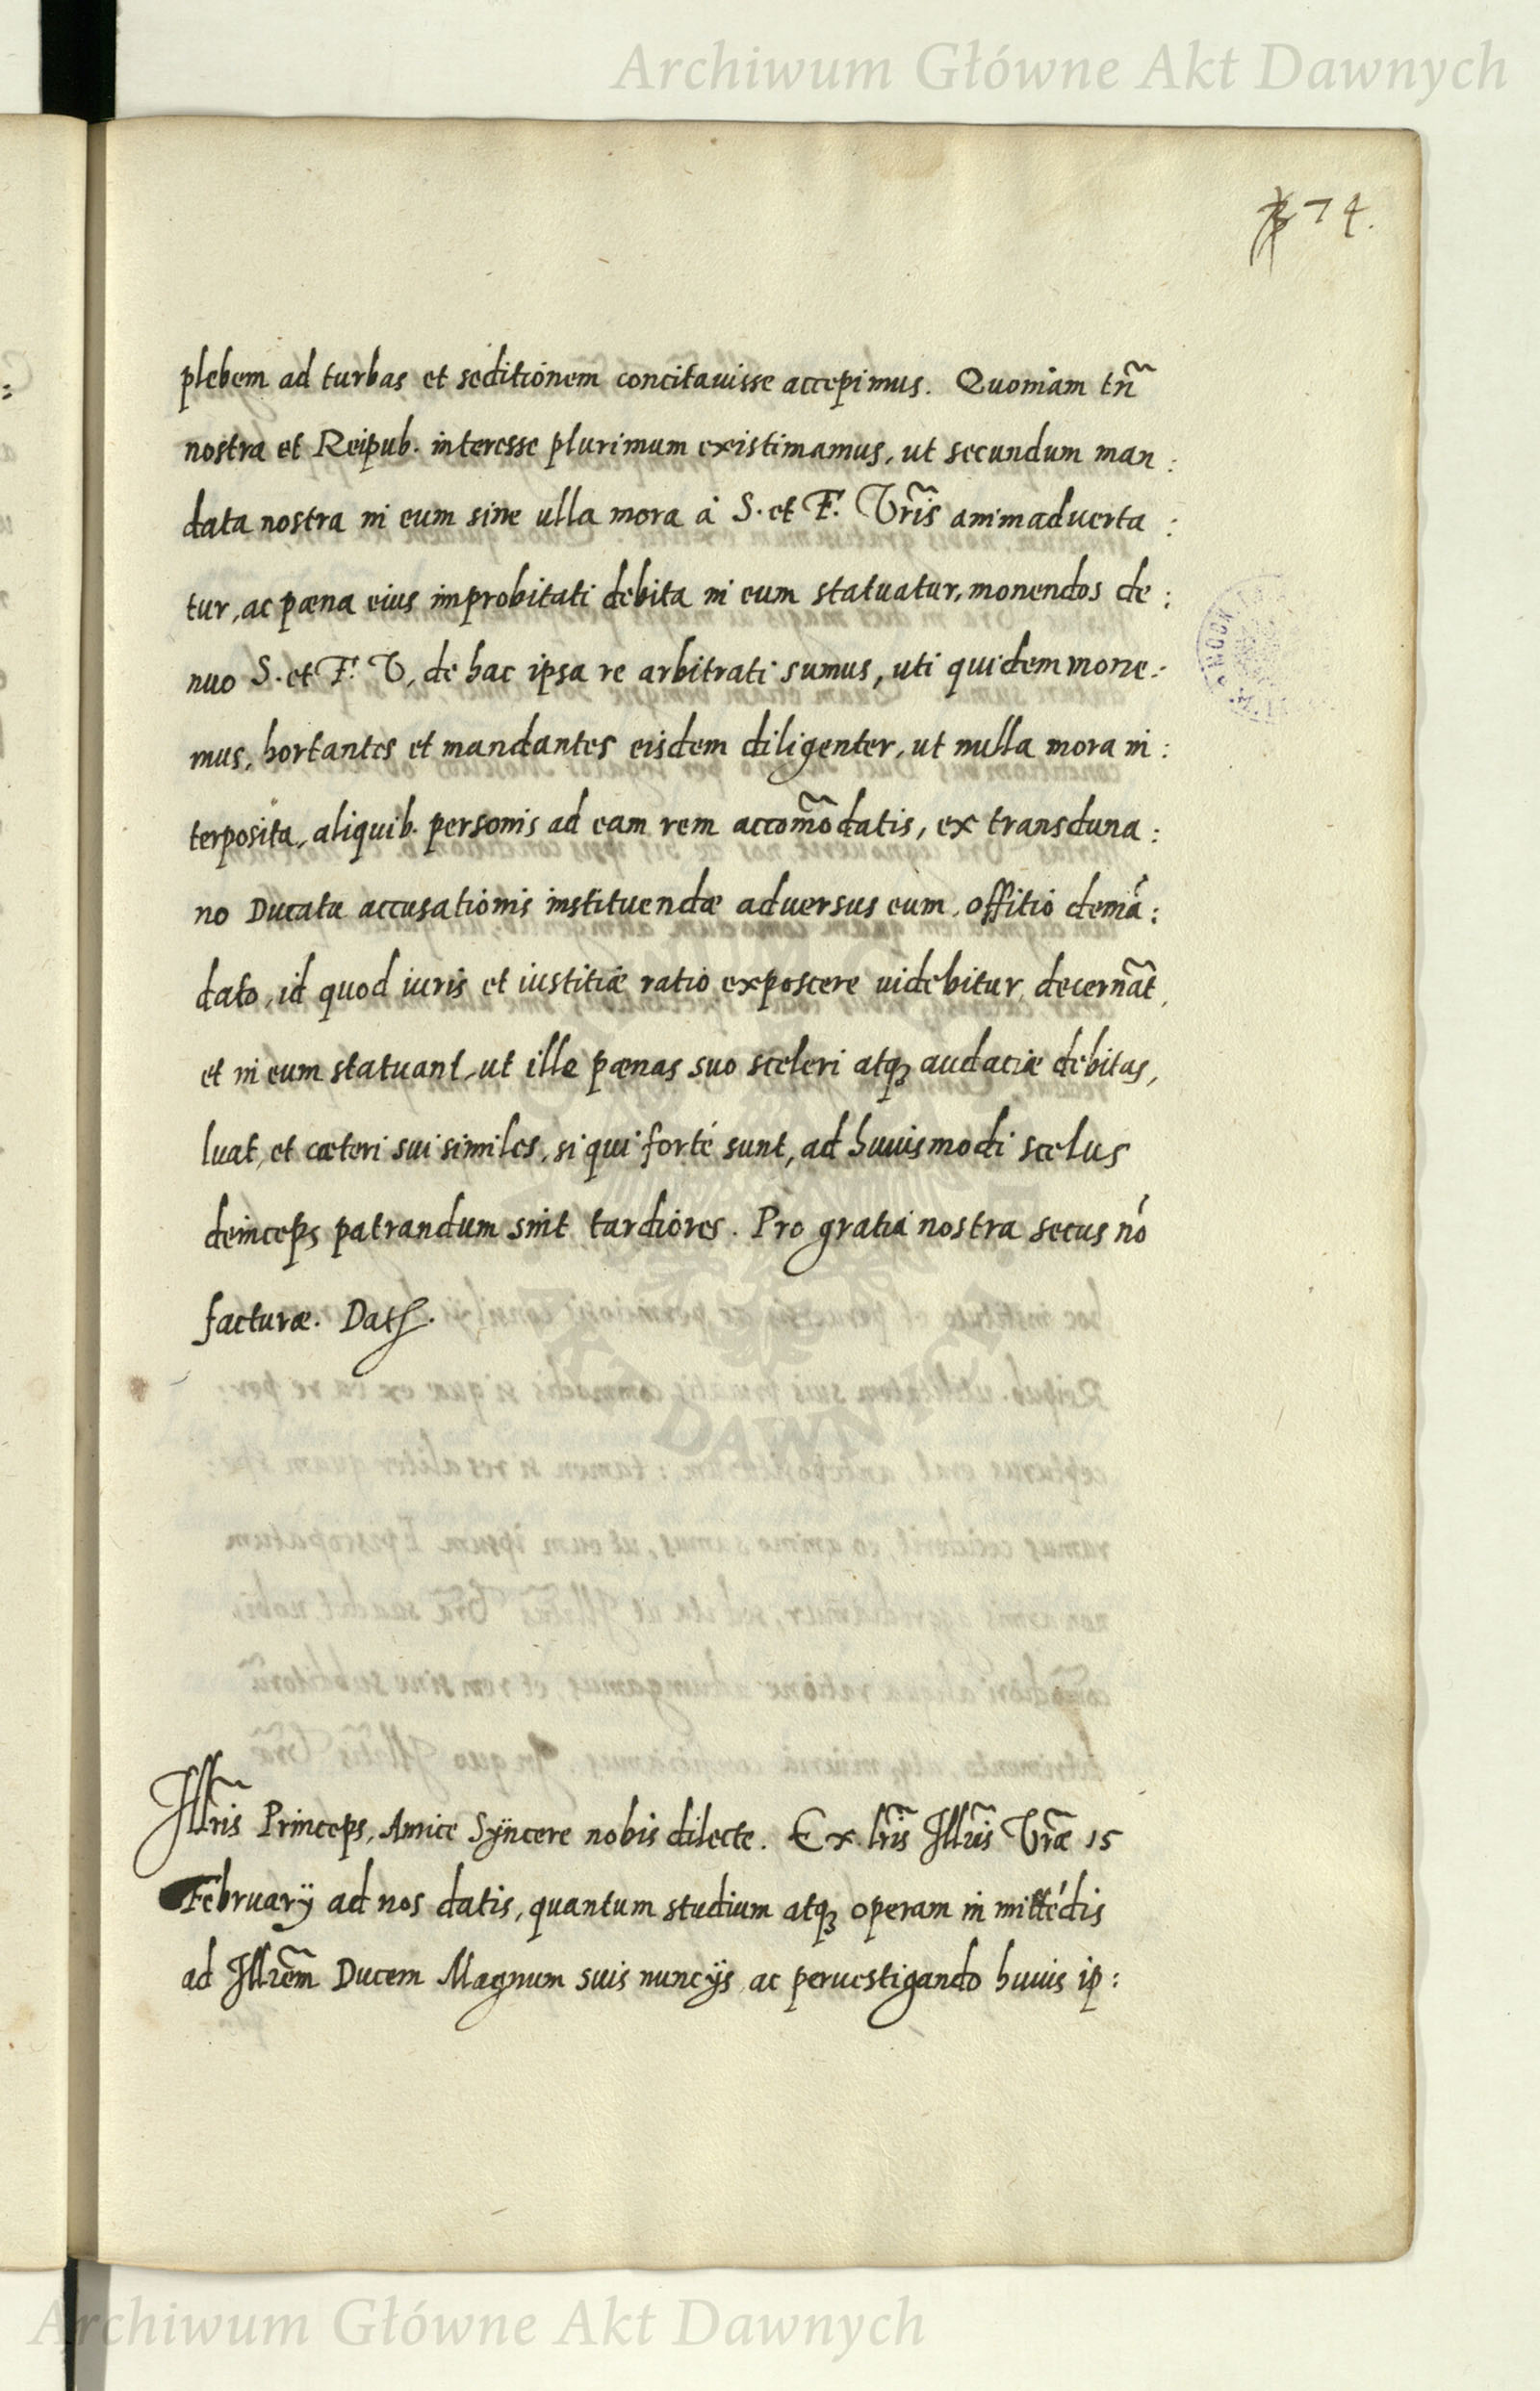 Archiwum Główne Akt Dawnych
74.
plebem ad turbas et seditionem concitauisse accepimus. Quoniam tñ
nostra et Reipub. interesse plurimum existimamus, ut secundum man:
data nostra in eum sine ulla mora à S. et F. Vr̃is animaduerta:
tur, ac pœna eius improbitati debita in eum statuatur, monendos de:
nuo S. et F. V, de hac ipsa re arbitrati sumus, uti quidem mone:
mus, hortantes et mandantes eisdem diligenter, ut nulla mora in:
terposita, aliquib. personis ad eam rem accom̃odatis, ex transduna:
no Ducatu accusationis instituendæ aduersus eum, offitio demā:
dato, id quod iuris et iustitiæ ratio exposcere uidebitur, decernāt,
et in eum statuant, ut ille pœnas suo sceleri atq; audaciæ debitas,
luat, et cæteri sui similes, si qui forté sunt, ad huiusmodi scelus
deinceps patrandum sint tardiores. Pro gratia nostra secus nō
facturæ. Dat.
Illr̃is Princeps, Amice Syncere nobis dilecte. Ex lr̃is Illr̃is Vr̃æ 15
February ad nos datis, quantum studium atq; operam in mittēdis
ad Illrẽm Ducem Magnum suis nuncijs ac peruestigando huius ip:
Archiwum Główne Akt Dawnych